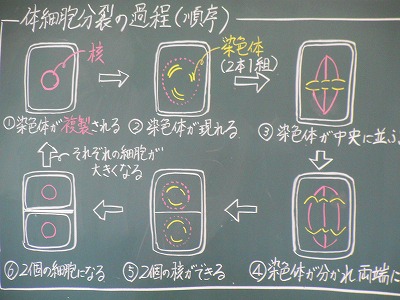 体細胞分裂の過程(順序)
核
染色体
(2本1組)
①染色体が複製される
②染色体が現れる
③染色体が中央に並ぶ
それぞれの細胞が
大きくなる
⑥2個の細胞になる
⑤2個の核ができる
④染色体が分かれ両端に